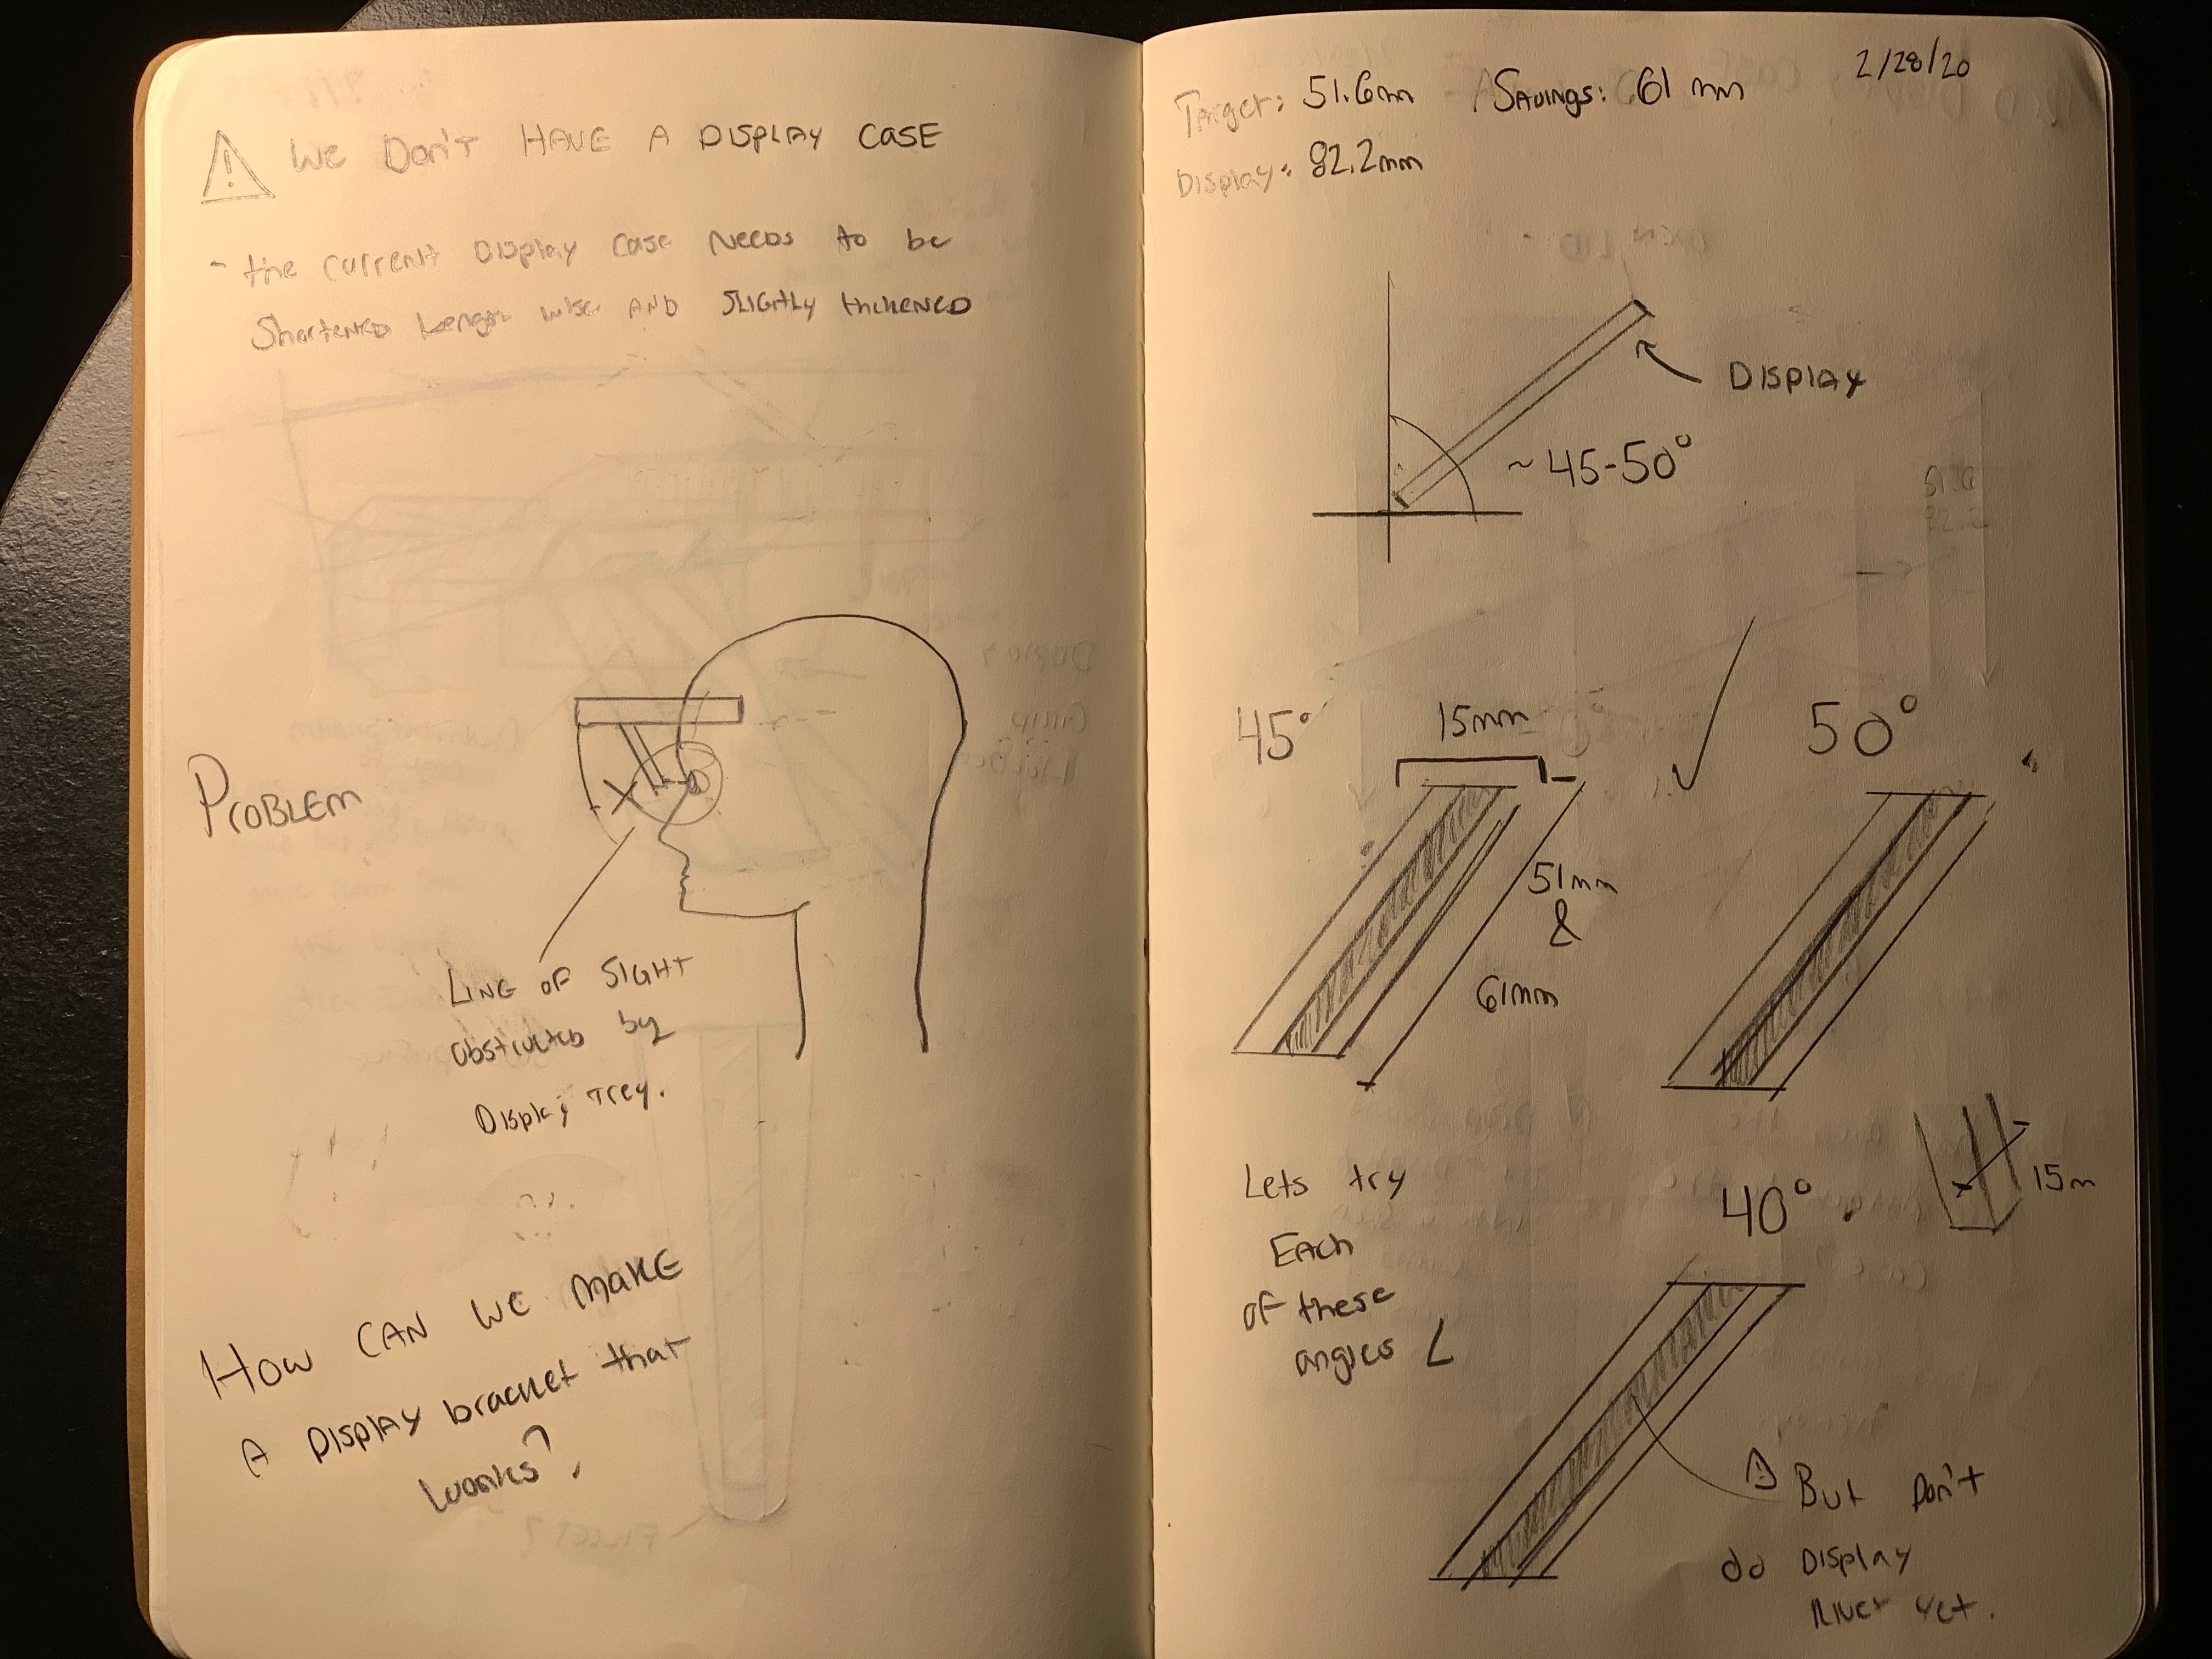 We Don't HAVE A DISPLAY CASE
- the current Display case Needs to be
Shortened Length wise AND SLIGHTLY thickened
PROBLEM
LINE OF SIGHT
obstructed by
Display Trey.
How CAN WE MAKE
A DISPLAY bracket that
works?
2/28/20
Target: 51.6mm
SAVINGS: 61 mm
Display: 82.2mm
DISPLAY
~45-50°
45°
15mm
50°
51mm
&
61mm
Lets try
EACH
of these
angles
40°
15m
But Don't
do DISPLAY
River yet.